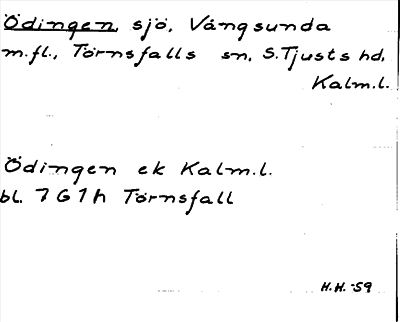 Ödingen, sjö, Vångsunda
m.fl., Törnsfalls sn, S.Tjusts hd,
Kalm.l.
Ödingen ek Kalm.l.
bl. 7G1h Törnsfall
H.H. -59